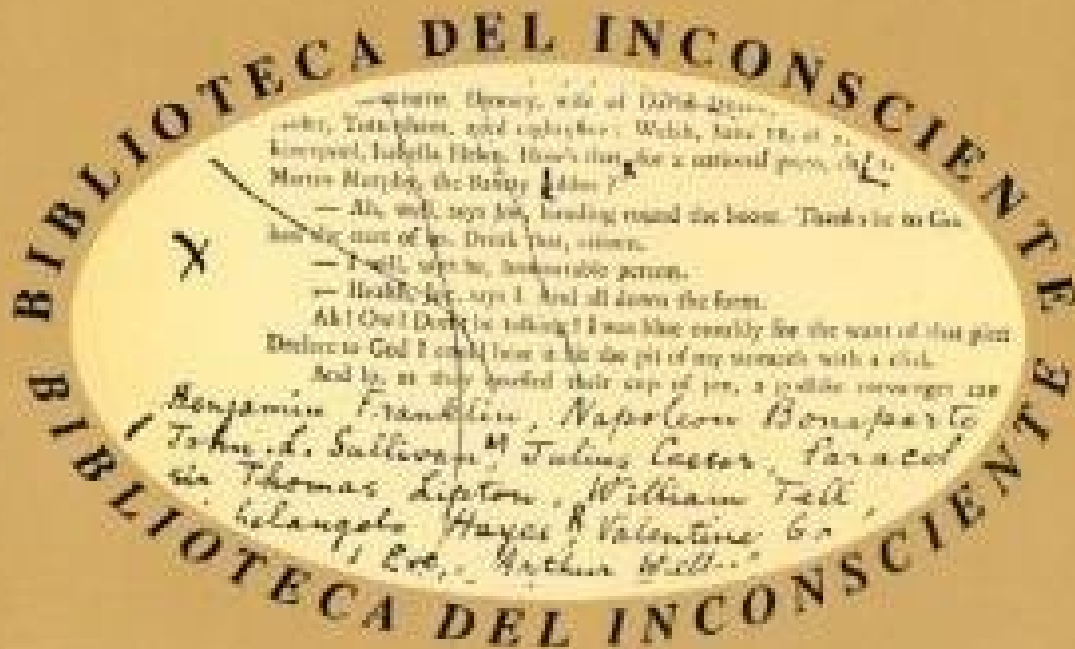 BIBLIOTECA DEL INCONSCIENTE
wife of
Welsh, June 12, at
Liverpool, Isabella Helen. How's that for a national press,
Martin Murphy, the Bantry jobber?
— Ah, well, says Joe, handing round the boose. Thanks be to God
had the start of us. Drink that, citizen.
— I will, says he, honourable person.
— Health, Joe, says I. And all down the form.
Ah! Ow! Don't be talking! I was blue mouldy for the want of that pint
Declare to God I could hear it hit the pit of my stomach with a click.
And lo, as they quaffed their cup of joy, a godlike messenger
Benjamin Franklin, Napoleon Bonaparte
John L. Sullivan, Julius Caesar, Paracel
sir Thomas Lipton, William Tell,
helangelo Hayes, Valentine Gr
Eve, Arthur Well
BIBLIOTECA DEL INCONSCIENTE